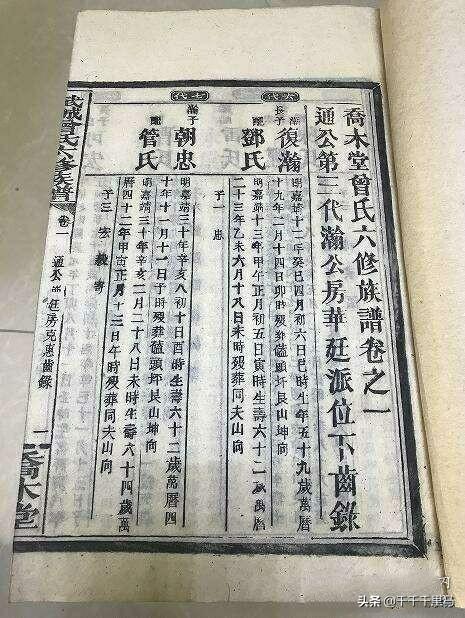 喬木堂曾氏六修族譜卷之一
通公第二代瀚公房華廷派位下齒錄
長子
復瀚
明嘉靖十二年癸巳四月初六日巳時生年五十九歲萬曆
十九年二月十四日卯時殁葬磕頭坪艮山坤向
配
鄧氏
明嘉靖十三年甲午正月初五日寅時生壽六十二歲萬曆
二十三年乙未六月十八日未時殁葬同夫山向
子一
瀚子
朝忠
明嘉靖三十年辛亥八月初十日酉時生壽六十二歲萬曆四
十年十一月十一日子時殁葬磕頭坪艮山坤向
配
管氏
明嘉靖三十年辛亥二月二十八日未時生壽六十四歲萬
曆四十二年甲寅正月十三日午時殁葬同夫山向
子三
武城曾氏六修族譜
卷一
一
喬木堂
头条 @千千千里马